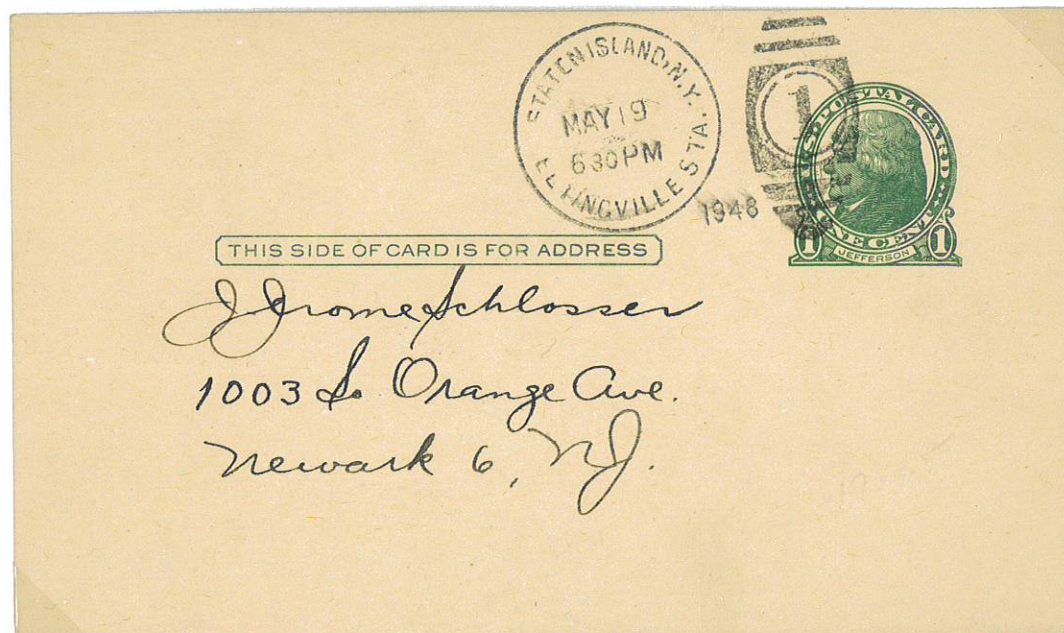 STATEN ISLAND, N.Y.
MAY 19
630PM
ELTINGVILLE STA.
1948
1
U.S. POSTAL CARD
1 ONE CENT 1
JEFFERSON
THIS SIDE OF CARD IS FOR ADDRESS
J Jrome Schlosser
1003 So Orange Ave.
Newark 6, NJ.